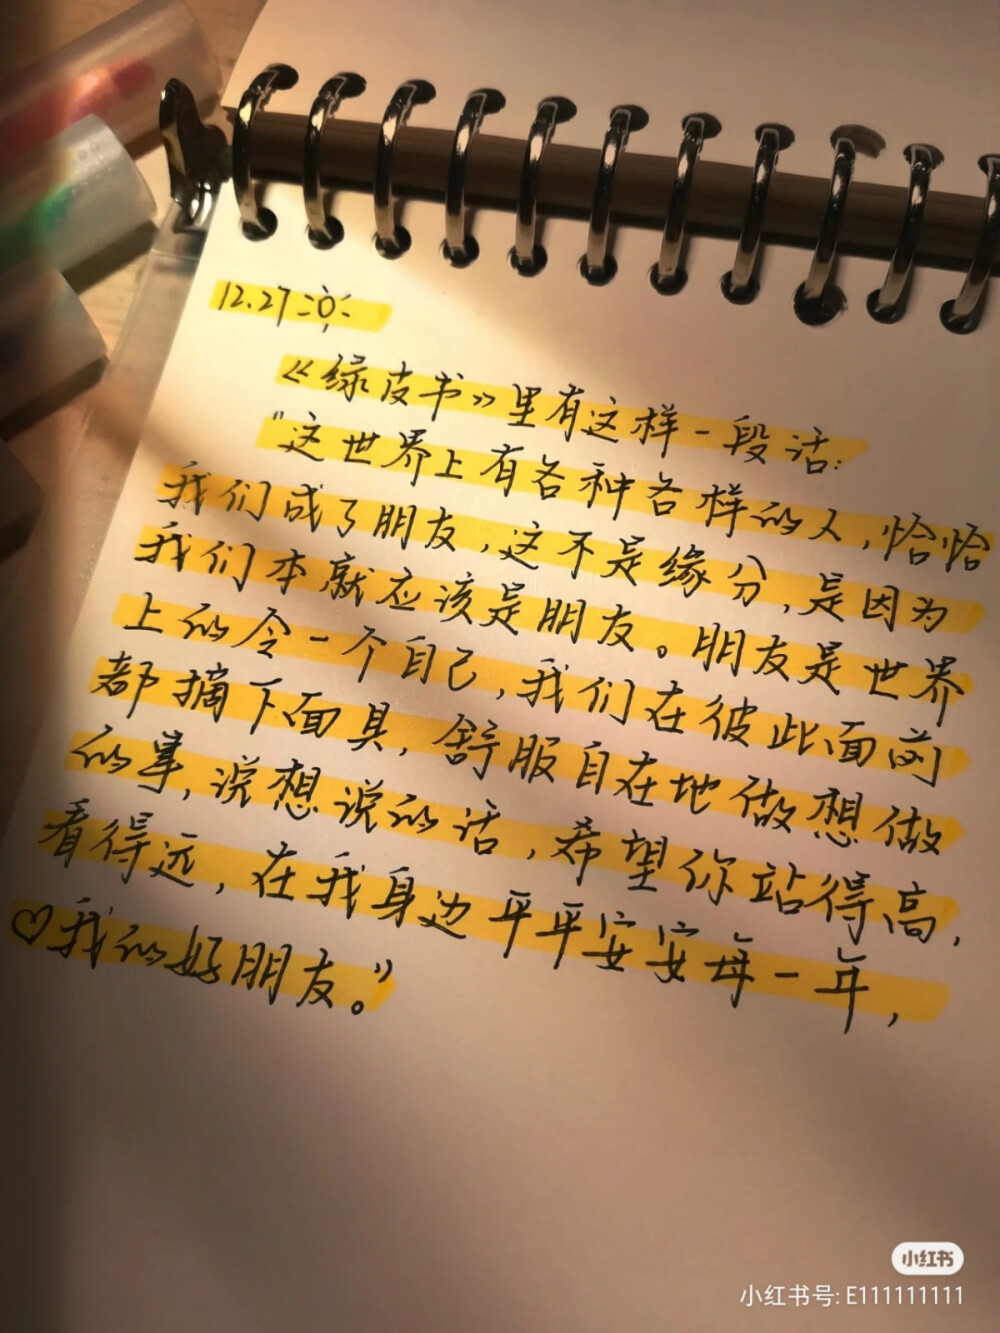 12.27
《绿皮书》里有这样一段话:
"这世界上有各种各样的人,恰恰
我们成了朋友,这不是缘分,是因为
我们本就应该是朋友。朋友是世界
上的令一个自己,我们在彼此面前
都摘下面具,舒服自在地做想做
的事,说想说的话,希望你站得高,
看得远,在我身边平平安安每一年,
♡我的好朋友。"
小红书
小红书号:E111111111